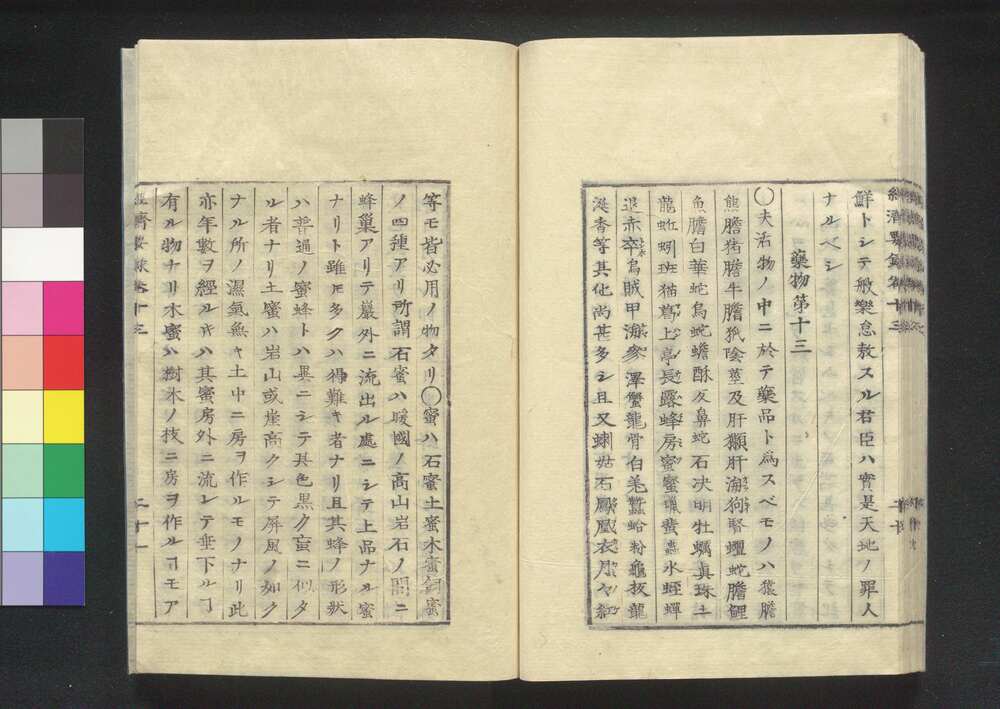 經濟要錄卷十三
鮮トシテ般樂怠敖スル君臣ハ實是天地ノ罪人
ナルベシ
藥物第十三
○夫活物ノ中ニ於テ藥品ト爲スベモノハ猿膽
熊膽猯膽牛膽狐陰莖及肝獺肝海狗腎蝹蛇膽鯉
魚膽白華蛇烏蛇蟾酥及鼻蛇石决明牡蠣眞珠土
龍蚯蚓班猫葛上亭長露蜂房蜜蜜蠟蜚蟲水蛭蟬
退赤卒烏賊甲海參澤蟹龍骨白羌蠶蛤粉龜板龍
涎香等其化尚甚多シ且又螻姑石鳳凰衣
等モ皆必用ノ物タリ○蜜ハ石蜜土蜜木蜜飼蜜
ノ四種アリ所謂石蜜ハ暖國ノ高山岩石ノ間ニ
蜂巢アリテ巖外ニ流出ル處ニシテ上品ナル蜜
ナリト雖𪜈多クハ得難キ者ナリ且其蜂ノ形狀
ハ普通ノ蜜蜂トハ異ニシテ其色黒ク䖟ニ似タ
ル者ナリ土蜜ハ岩山或崖高クシテ屏風ノ如ク
ナル所ノ濕氣無キ土中ニ房ヲ作ルモノナリ此
亦年數ヲ經ルキハ其蜜房外ニ流レテ垂下ルヿ
有ル物ナリ木蜜ハ樹木ノ技ニ房ヲ作ルヿモア
經濟要錄卷十三 二十一